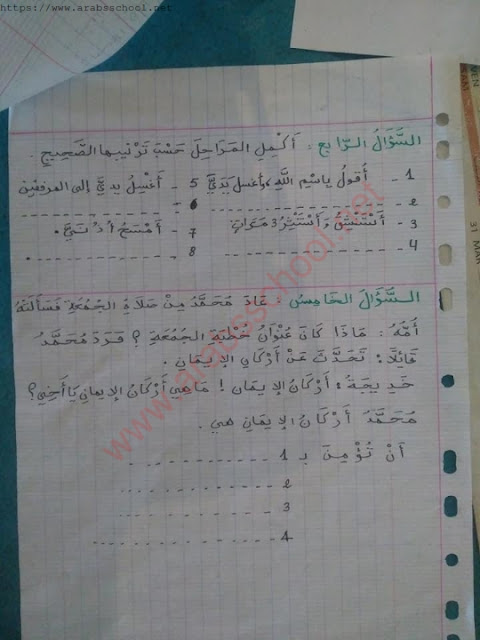 https://www.arabsschool.net
السؤال الرابع : أكمل المراحل حسب ترتيبها الصحيح.
1 - أقول باسم الله، وأغسل يديَّ 5 - أغسل يديَّ إلى المرفقين
2 - - - - - - - - - - 6 - - - - - - - - - -
3 - أستنشق وأستنثر 3 مرات 7 - أمسح أذنيَّ.
4 - - - - - - - - - - 8 - - - - - - - - - -
السؤال الخامس : عاد محمد من صلاة الجمعة فسألته
أمه : ماذا كان عنوان خطبة الجمعة ؟ فرد محمد
قائلا : تحدث عن أركان الإيمان .
خديجة : أركان الإيمان ! ما هي أركان الإيمان يا أخي ؟
محمد أركان الإيمان هي .
أن تؤمن بـ 1 - - - - - - - - - -
2 - - - - - - - - - -
3 - - - - - - - - - -
4 - - - - - - - - - -
www.arabsschool.net
31 MAR